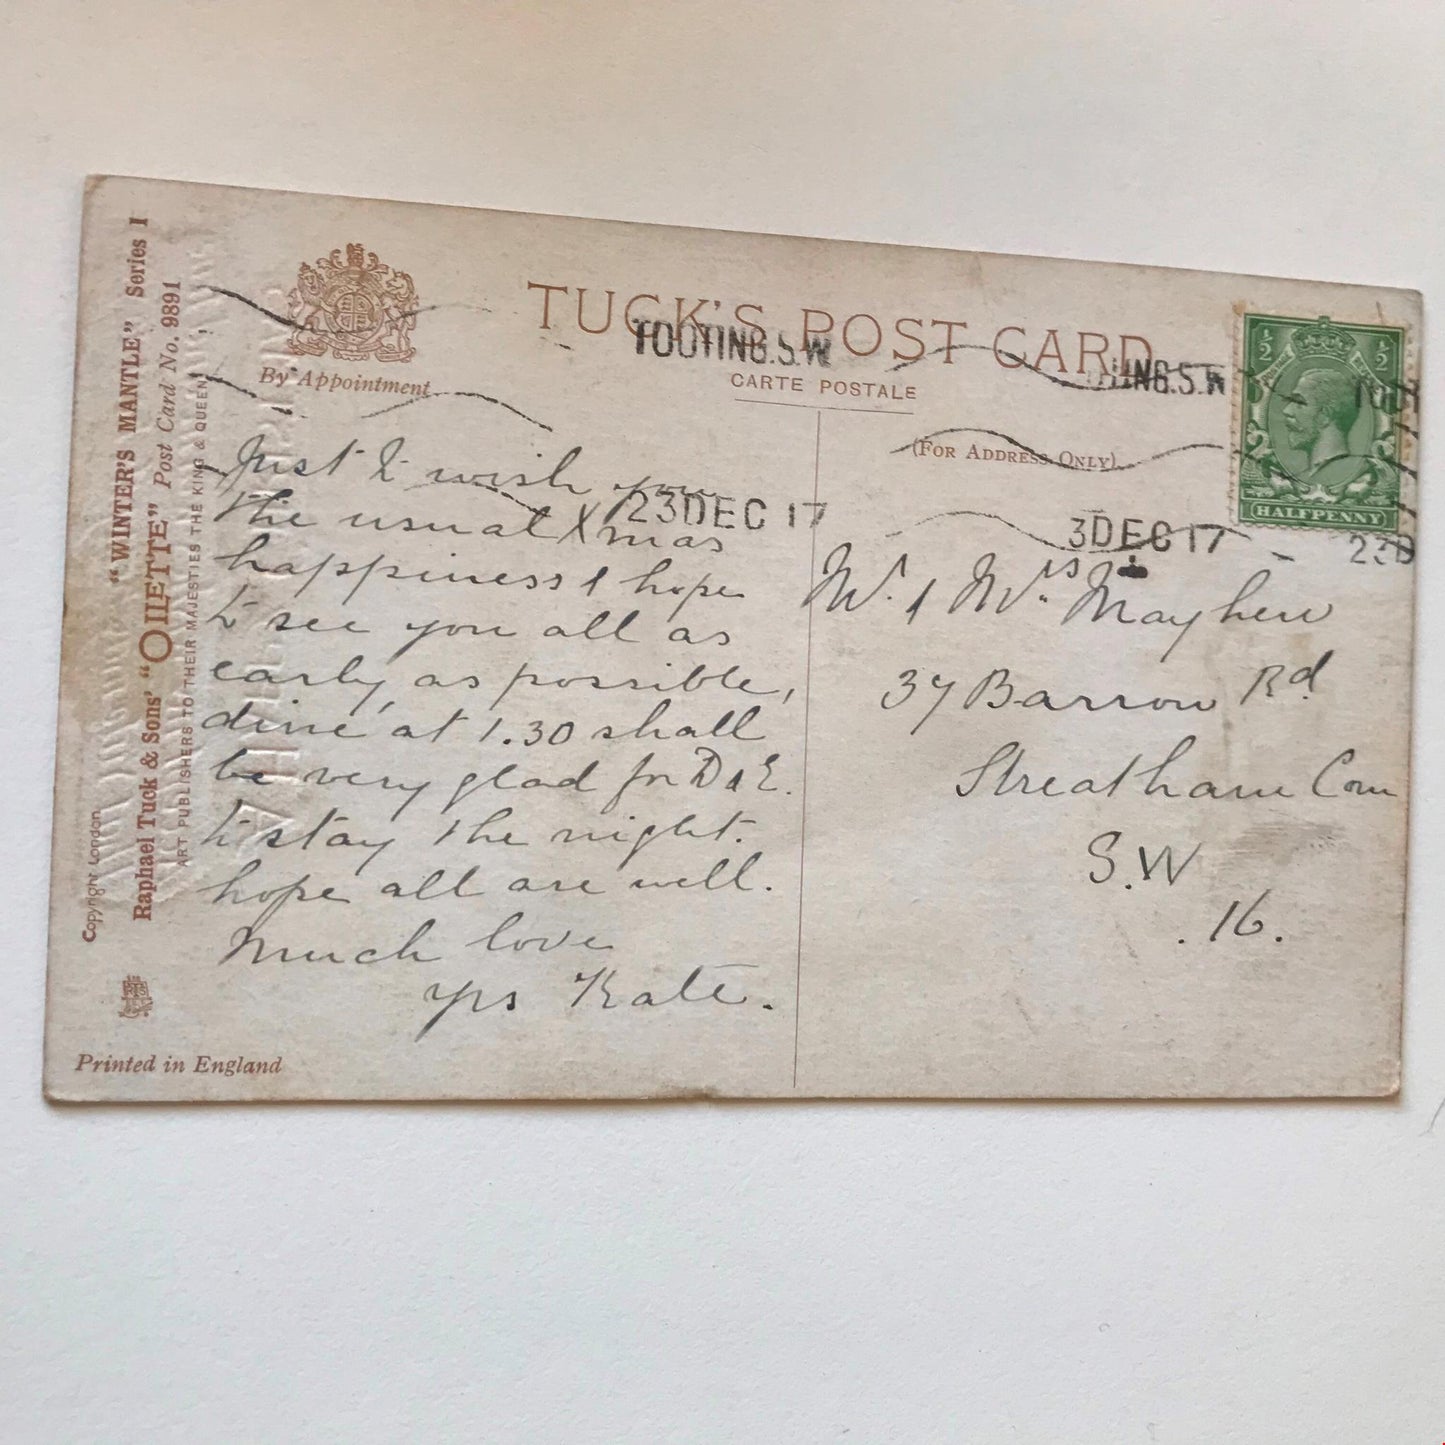 "WINTER'S MANTLE" Series I
Raphael Tuck & Sons' "OILETTE" Post Card No. 9891
ART PUBLISHERS TO THEIR MAJESTIES THE KING & QUEEN.
Copyright London
By Appointment
TUCK'S POST CARD
CARTE POSTALE
(FOR ADDRESS ONLY).
TOOTING.S.W
TING.S.W
TOOT
23DEC 17
3DEC17
23D
½ ½
HALFPENNY
Just to wish you
the usual Xmas
happiness & hope
to see you all as
early, as possible,
dine at 1.30 shall
be very glad for D & E.
to stay the night.
hope all are well.
Much love
yrs Kate.
Mr. & Mrs. Mayhew
37 Barrow Rd
Streatham Com
S.W
.16.
Printed in England